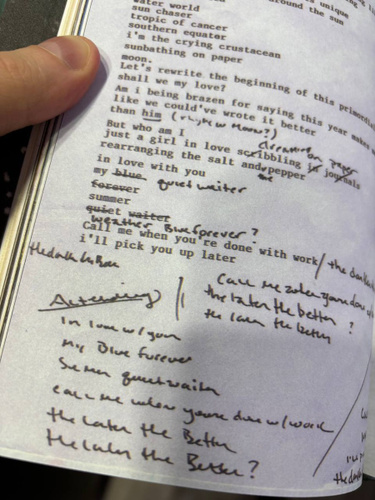 around the sun
water world
sun chaser
tropic of cancer
southern equator
i'm the crying crustacean
sunbathing on paper
moon.
Let's rewrite the beginning of this
shall we my love?
Am i being brazen for saying this year makes
like we could've wrote it better
than him
But who am I
just a girl in love scribbling in journals
rearranging the salt and pepper
in love with you
my blue quiet waiter
forever
summer
quiet waiter
weather Blue forever?
Call me when you're done with work/
i'll pick you up later
Call me when you're done
the later the better ?
the later the better
in love w/ you
my Blue Forever
quiet waiter
call me when you're done w/ work
the later the Better
the later the Better?